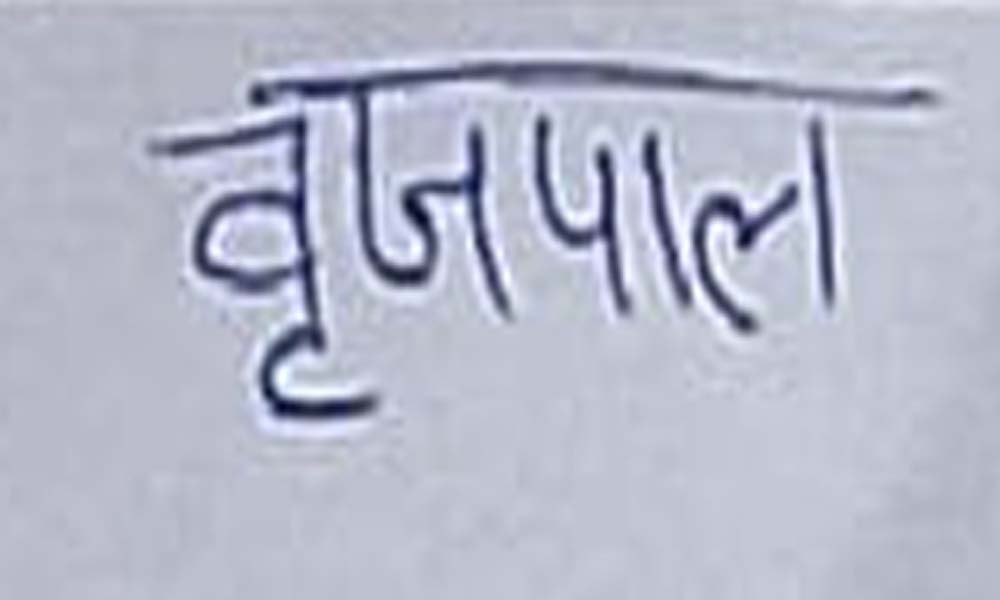 वृजपाल